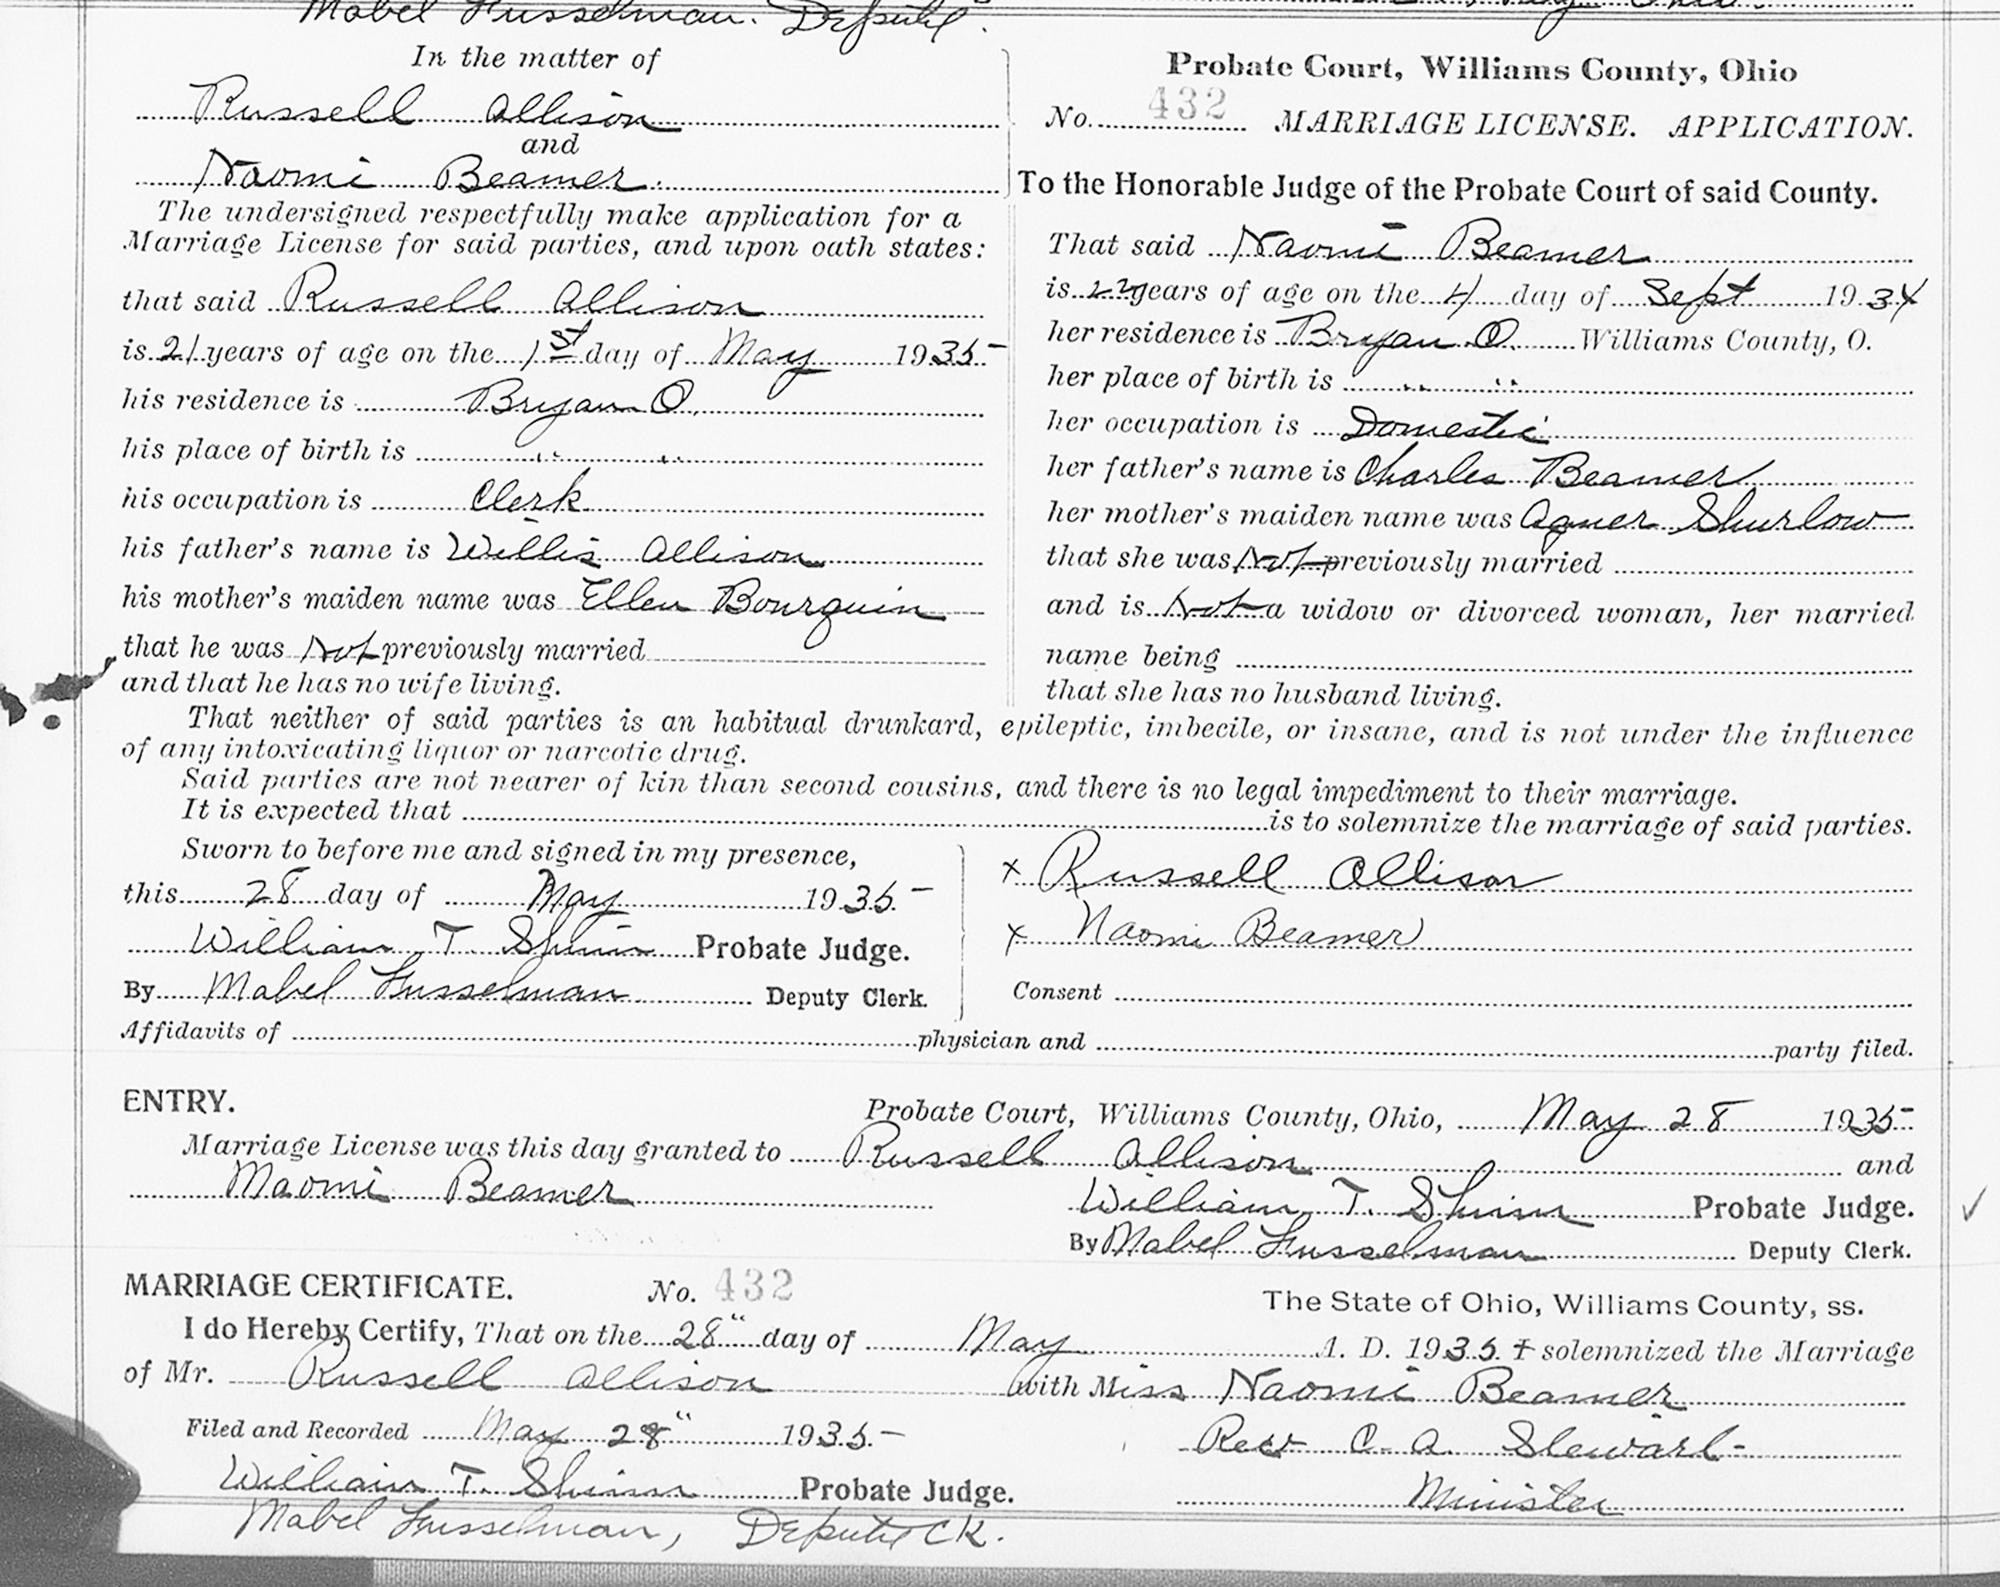 Mabel Fusselman. Deputy.
In the matter of
Russell Allison
and
Naomi Beamer.
The undersigned respectfully make application for a
Marriage License for said parties, and upon oath states:
that said Russell Allison
is 21 years of age on the 1st day of May 1935
his residence is Bryan O.
his place of birth is " "
his occupation is Clerk
his father's name is Willis Allison
his mother's maiden name was Ellen Bourquin
that he was Not previously married
and that he has no wife living.
Probate Court, Williams County, Ohio
No. 432 MARRIAGE LICENSE. APPLICATION.
To the Honorable Judge of the Probate Court of said County.
That said Naomi Beamer
is 22 years of age on the 4 day of Sept 1934
her residence is Bryan O. Williams County, O.
her place of birth is " "
her occupation is Domestic
her father's name is Charles Beamer
her mother's maiden name was Agner Shurlow
that she was Not previously married
and is Not a widow or divorced woman, her married
name being
that she has no husband living.
That neither of said parties is an habitual drunkard, epileptic, imbecile, or insane, and is not under the influence
of any intoxicating liquor or narcotic drug.
Said parties are not nearer of kin than second cousins, and there is no legal impediment to their marriage.
It is expected that is to solemnize the marriage of said parties.
Sworn to before me and signed in my presence,
this 28 day of May 1935
William T. Shinn Probate Judge.
By Mabel Fusselman Deputy Clerk.
x Russell Allison
x Naomi Beamer
Consent
Affidavits of physician and party filed.
ENTRY.
Probate Court, Williams County, Ohio, May 28 1935
Marriage License was this day granted to Russell Allison and
Naomi Beamer
William T. Shinn Probate Judge.
By Mabel Fusselman Deputy Clerk.
MARRIAGE CERTIFICATE. No. 432
The State of Ohio, Williams County, ss.
I do Hereby Certify, That on the 28" day of May A. D. 1935 I solemnized the Marriage
of Mr. Russell Allison with Miss Naomi Beamer
Filed and Recorded May 28" 1935
Rev C. A. Stewart
William T. Shinn Probate Judge.
Minister
Mabel Fusselman, Deputy Ck.